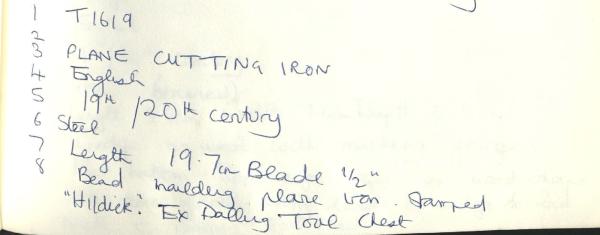 1 T1619
2
3 PLANE CUTTING IRON
4 English
5 19th /20th century
6 Steel
7 Length 19.7cm Blade 1/2"
8 Bead moulding plane iron. Stamped
"Hildick". Ex Dalling Tool Chest